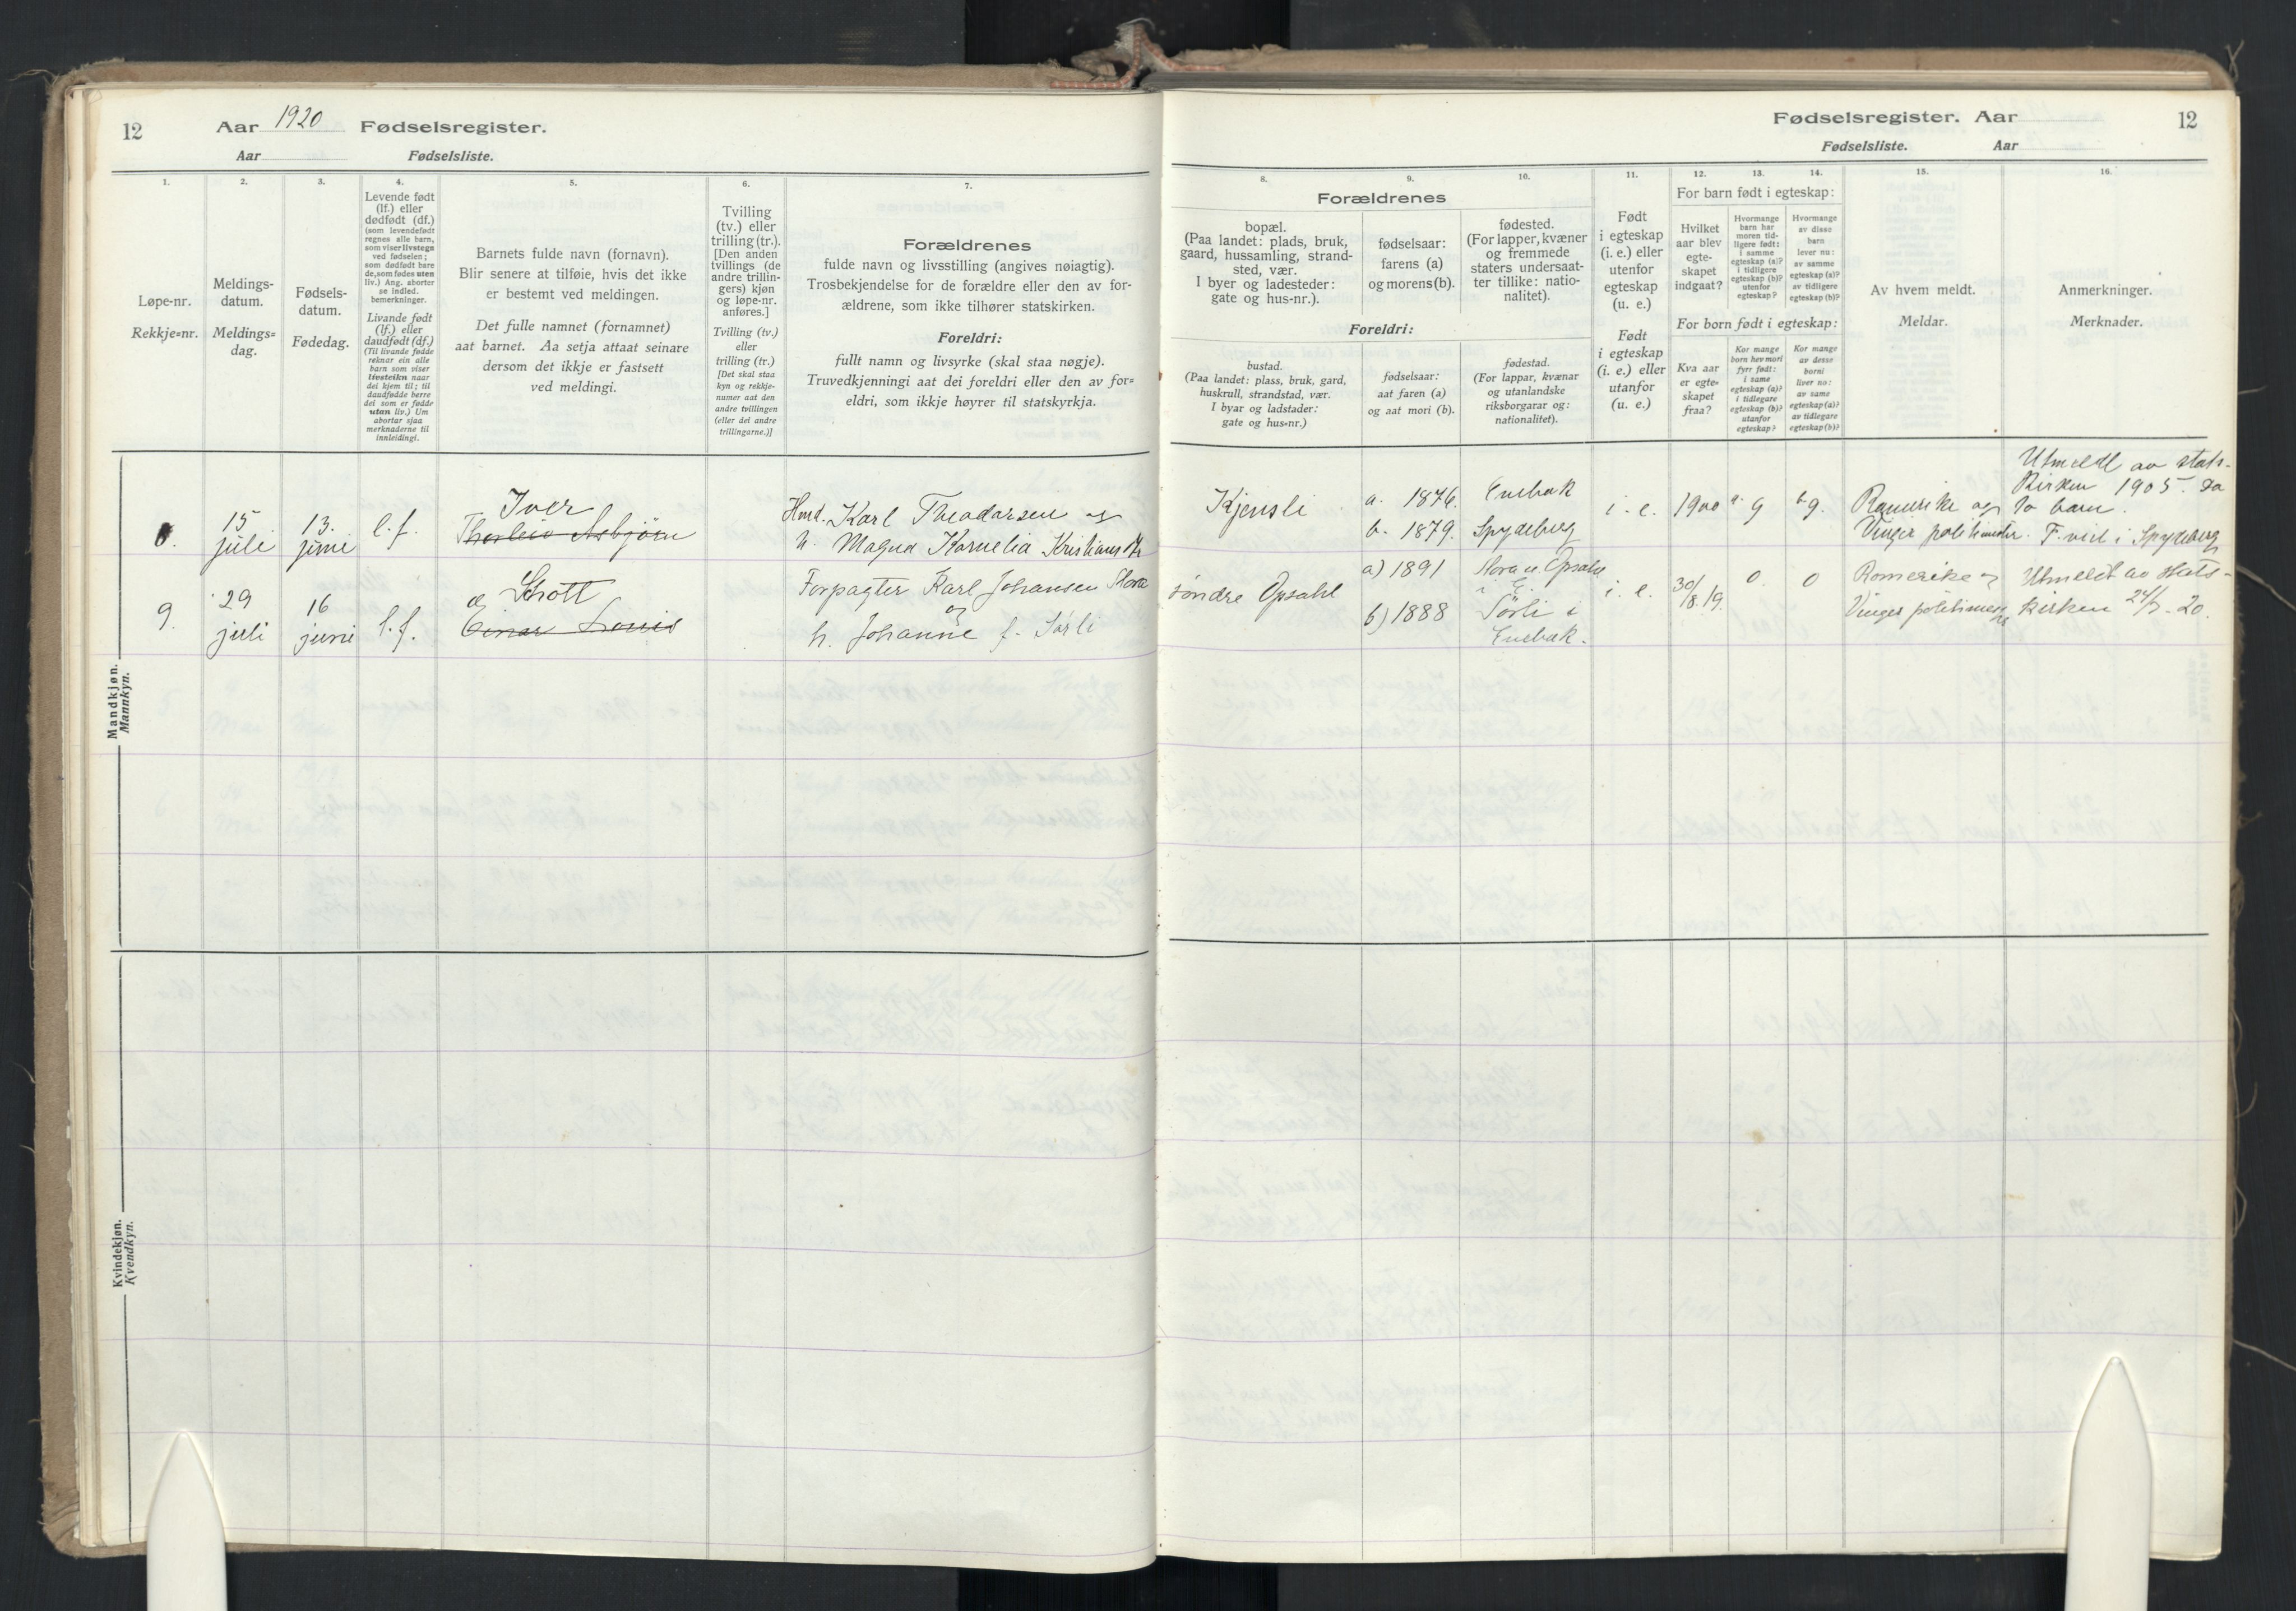 12 Aar 1920 Fødselsregister.
Aar Fødselsliste.
Fødselsregister. Aar 12
Fødselsliste. Aar
1.
Løpe-nr.
Rekkje=nr.
2.
Meldings-
datum.
Meldings=
dag.
3.
Fødsels-
datum.
Fødedag.
4.
Levende født
(lf.) eller
dødfødt (df.)
(som levendefødt
regnes alle barn,
som viser livstegn
ved fødselen;
som dødfødt bare
de, som fødes uten
liv.) Ang. aborter
se indled.
bemerkninger.
Livande født
(lf.) eller
daudfødt (df.)
(Til livande fødde
reknar ein alle
barn som viser
livsteikn naar
dei kjem til; til
daudfødde berre
dei som er fødde
utan liv.) Um
abortar sjaa
merknaderne til
innleidingi.
5.
Barnets fulde navn (fornavn).
Blir senere at tilføie, hvis det ikke
er bestemt ved meldingen.
Det fulle namnet (fornamnet)
aat barnet. Aa setja attaat seinare
dersom det ikkje er fastsett
ved meldingi.
6.
Tvilling
(tv.) eller
trilling (tr.).
[Den anden
tvillings (de
andre trillin-
gers) kjøn
og løpe-nr.
anføres.]
Tvilling (tv.)
eller
trilling (tr.)
[Det skal staa
kyn og rekkje-
numer aat den
andre tvillingen
(eller dei andre
trillingarne.)]
7.
Forældrenes
fulde navn og livsstilling (angives nøiagtig).
Trosbekjendelse for de forældre eller den av for-
ældrene, som ikke tilhører statskirken.
Foreldri:
fullt namn og livsyrke (skal staa nøgje).
Truvedkjenningi aat dei foreldri eller den av for=
eldri, som ikkje høyrer til statskyrkja.
Forældrenes
8.
bopæl.
(Paa landet: plads, bruk,
gaard, hussamling, strand-
sted, vær.
I byer og ladesteder:
gate og hus-nr.).
Foreldri:
bustad.
(Paa landet: plass, bruk, gard,
huskrull, strandstad, vær.
I byar og ladstader:
gate og hus=nr.)
9.
fødselsaar:
farens (a)
og morens (b).
fødselsaar:
aat faren (a)
og aat mori (b).
10.
fødested.
(For lapper, kvæner
og fremmede
staters undersaat-
ter tillike: natio-
nalitet).
fødestad.
(For lappar, kvænar
og utanlandske
riksborgarar og:
nationalitet).
11.
Født
i egteskap
(i. e.) eller
utenfor
egteskap
(u. e.)
Født
i egteskap
(i. e.) eller
utanfor
(u. e.)
12. 13. 14.
For barn født i egteskap:
Hvilket
aar blev
egte-
skapet
indgaat?
Hvormange
barn har
moren tid-
ligere født:
i samme
egteskap (a)?
i tidligere
egteskap (b)?
utenfor
egteskap?
Hvormange
av disse
barn
lever nu:
av samme
egteskap (a)?
av tidligere
egteskap (b)?
For born født i egteskap:
Kva aar
er egte=
skapet
fraa?
Kor mange
born hev mori
fyrr født:
i same
egteskap (a)?
i tidlegare
egteskap (b)?
utanfor
egteskap?
Kor mange
av desse
borni
liver no:
av same
egteskap (a)?
av tidlegare
egteskap (b)?
15.
Av hvem meldt.
Meldar.
16.
Anmerkninger.
Merknader.
Mandkjøn.
Mannkyn.
8.
15
juli
13.
juni
l. f.
Iver
Thorleiv Asbjørn
Karl Theodorsen og
h. Magna Kornelia
Kjensli
a. 1876.
b. 1879.
Enebak
Spydeberg
i. e.
1900
a. 9
b. 9.
Romerike og
Vinger politimester.
Utmeldt av stats-
kirken 1905.
to barn.
F. viet i Spydeberg
9.
29
juli
16
juni
l. f.
Einar Louis
Forpagter Karl Johansen Stora
og
h. Johanne f. Sørli
søndre Opsahl
a) 1891
b) 1888
Stora n. Opsahl
i E.
Sörli i
Enebak.
i. e.
30/8. 19.
0.
0
Romerike og
Vinger politimester
Utmeldt av stats-
kirken 24/7-20.
Kvindekjøn.
Kvendkyn.